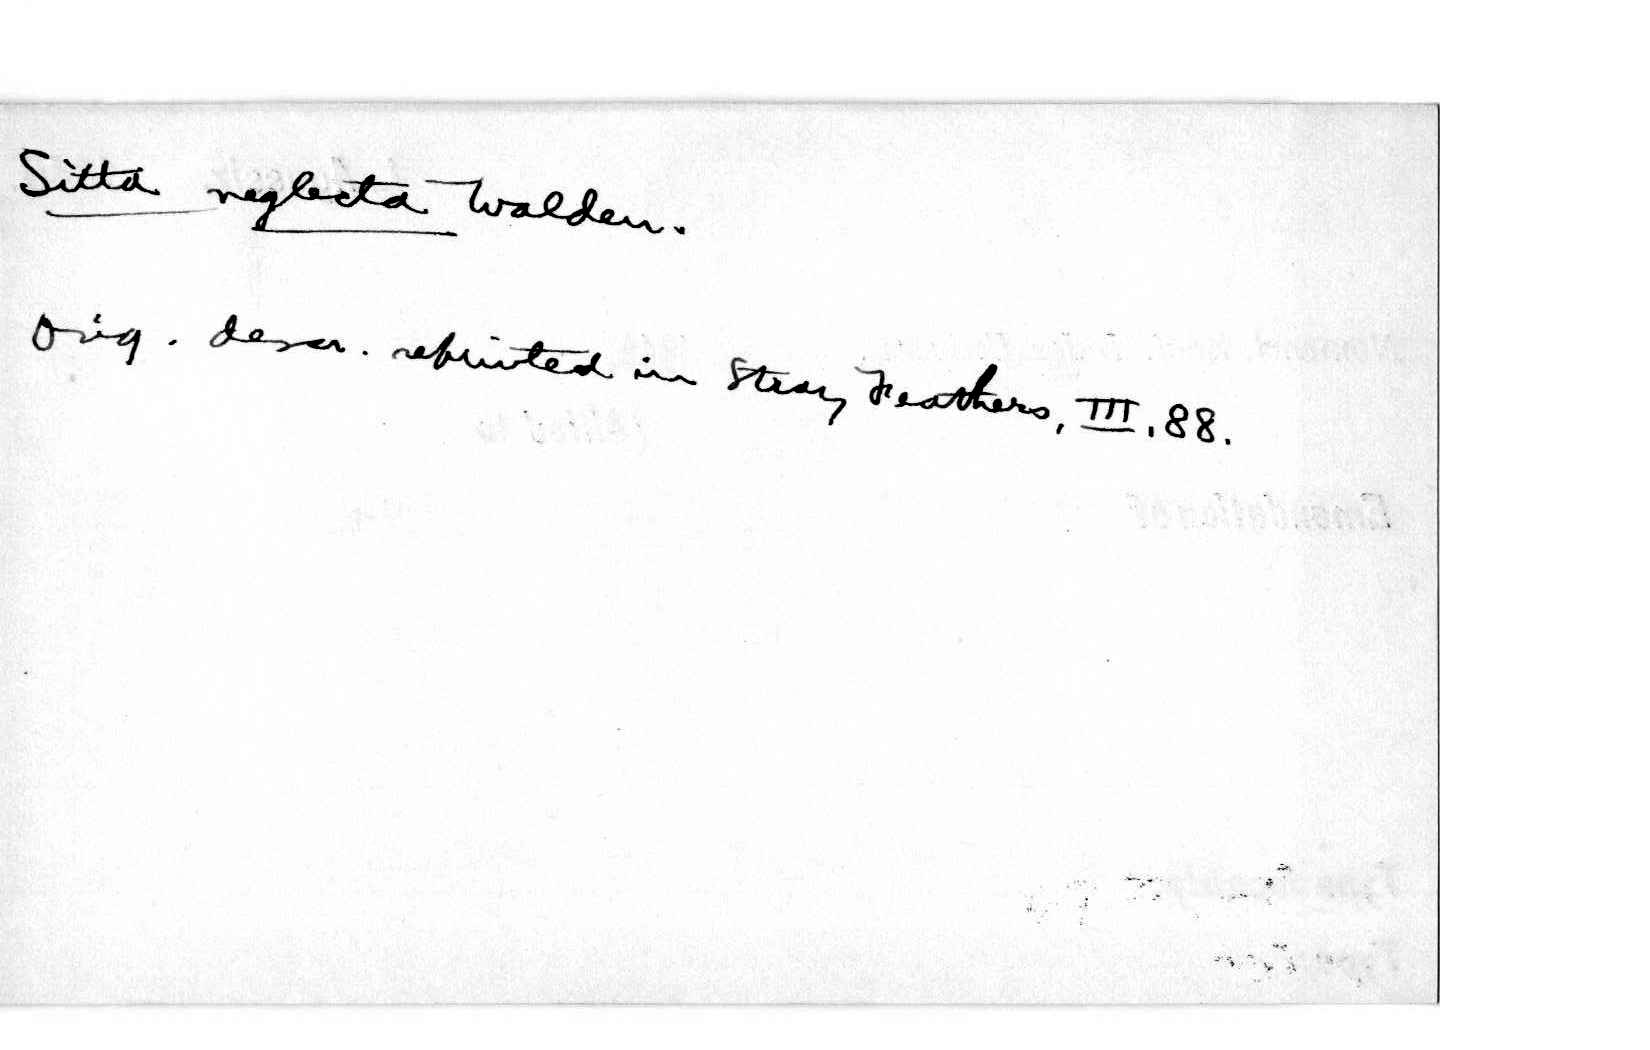 Sitta neglecta Walden.
Orig. descr. reprinted in Stray Feathers, III, 88.